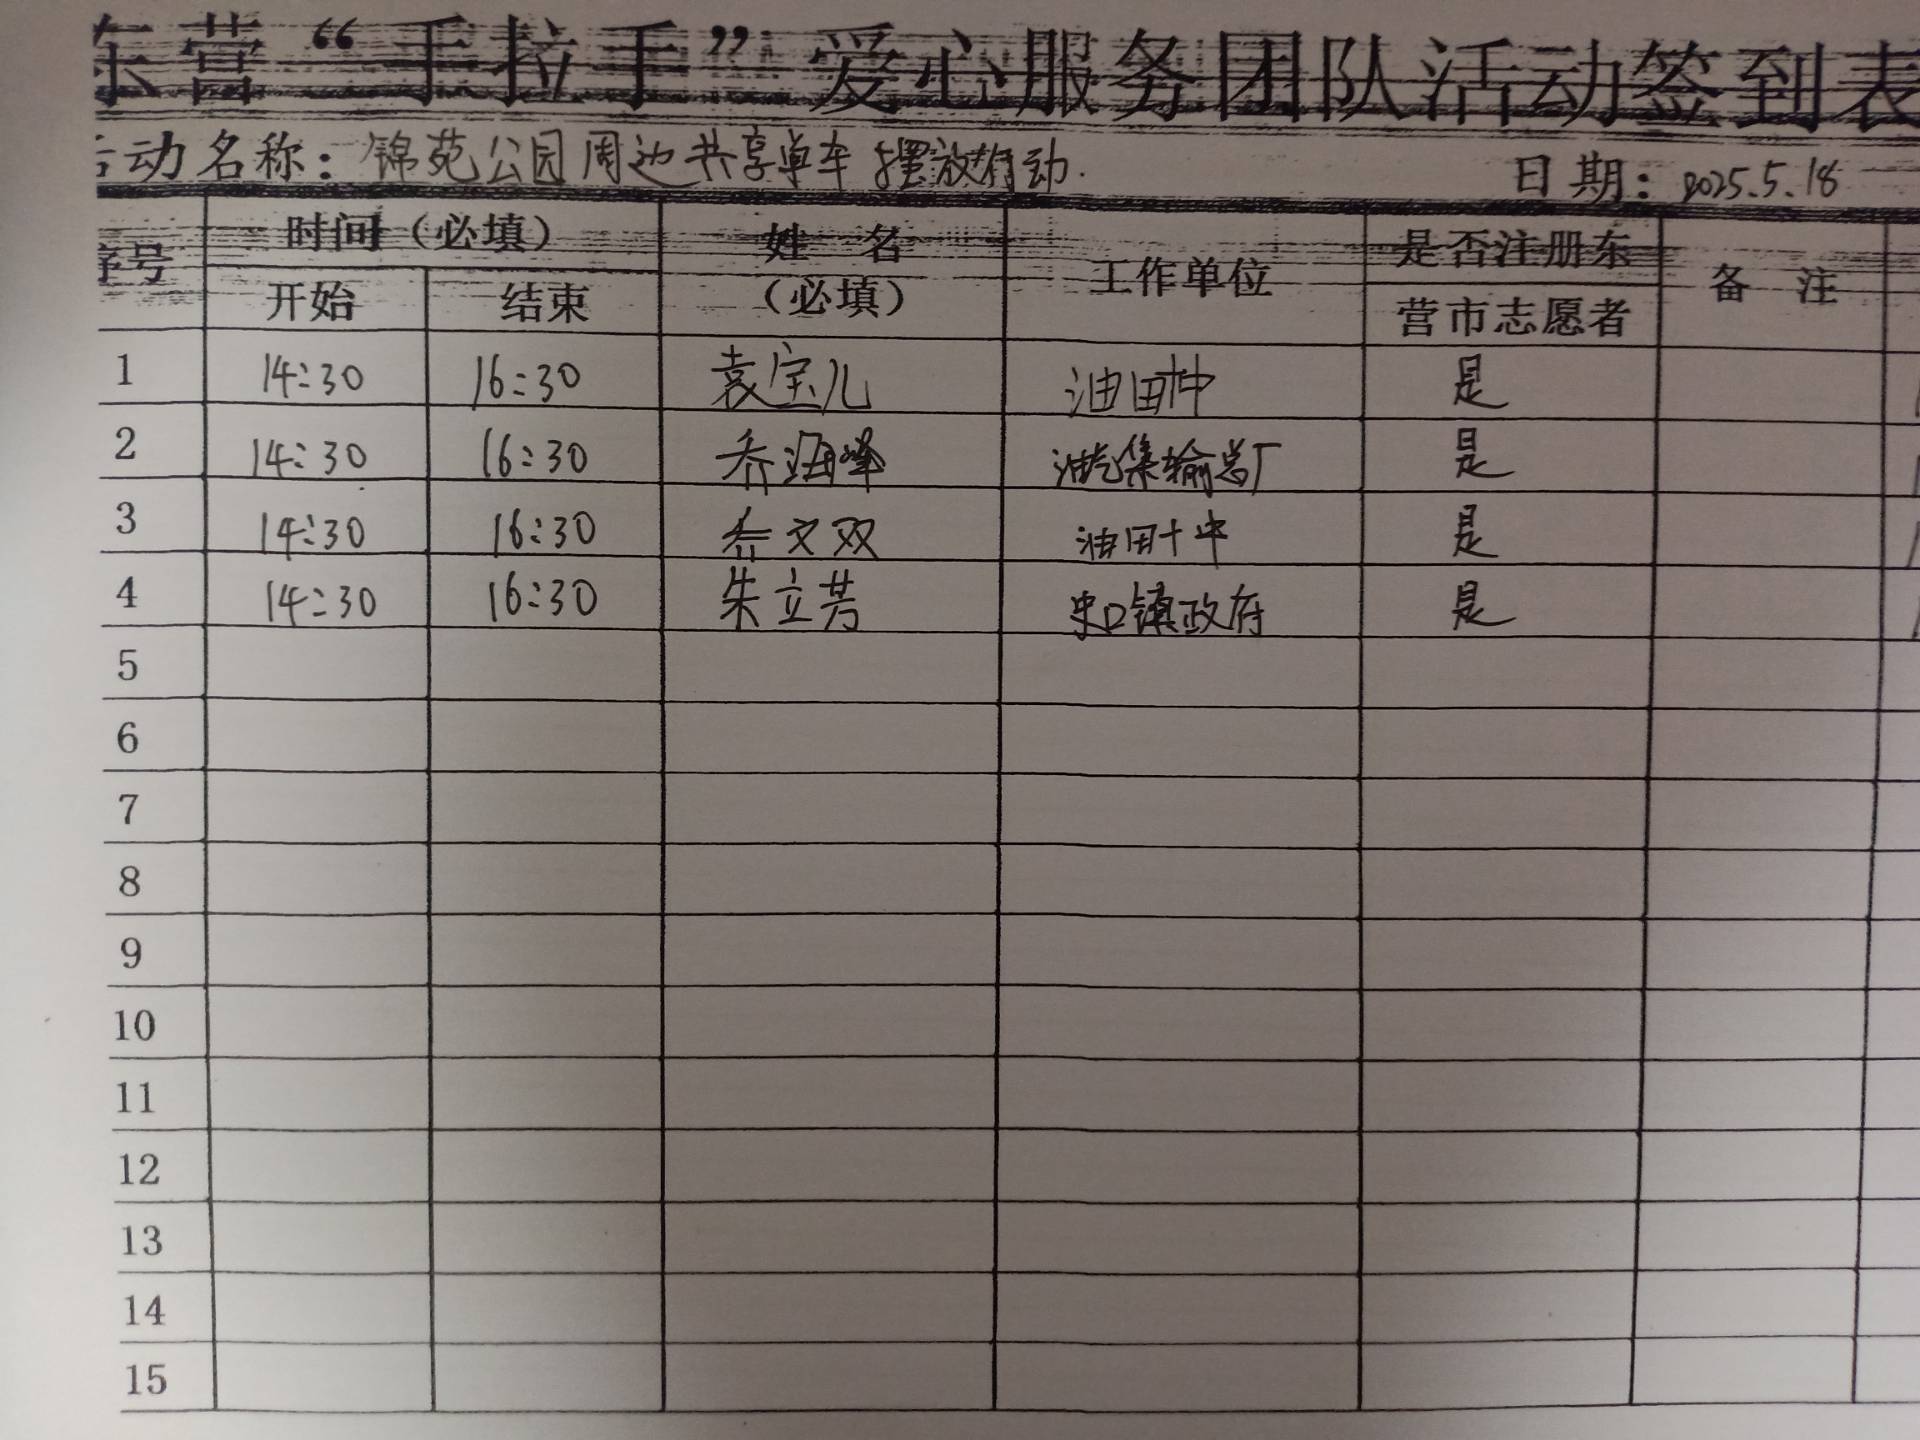 东营“手拉手”爱心服务团队活动签到表
活动名称：锦苑公园周边共享单车摆放行动. 日期：2025.5.18
序号 时间（必填） 姓 名（必填） 工作单位 是否注册东营市志愿者 备 注
开始 结束
1 14:30 16:30 袁宝儿 油田 是
2 14:30 16:30 乔海峰 油气集输总厂 是
3 14:30 16:30 乔文双 油田十中 是
4 14:30 16:30 朱立芳 史口镇政府 是
5
6
7
8
9
10
11
12
13
14
15